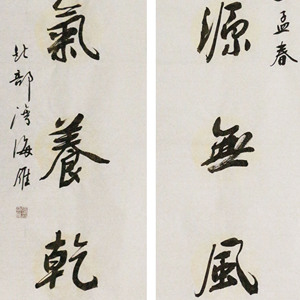 孟春
源無風
氣養乾
北部湾海雁